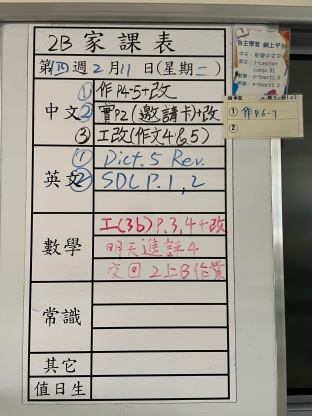 2B 家課表
第四週2月11日(星期二)
中文
①作P4-5+改
②實P2(邀請卡)+改
③工改(作文4&5)
英文
①Dict.5 Rev.
②SDL P.1,2
數學
工(3b)P.3,4+改
明天進評4
交回2上B作業
常識
其它
值日生
自主學習 網上平台
①作P6-7
②